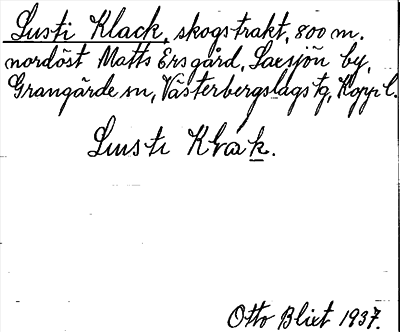 Lusti Klack, skogstrakt, 800 m.
nordöst Matts Ersgård, Laxsjön by,
Grangärde sn, Västerbergslags tg, Koppl.
Lusti Klak.
Otto Blixt 1937.